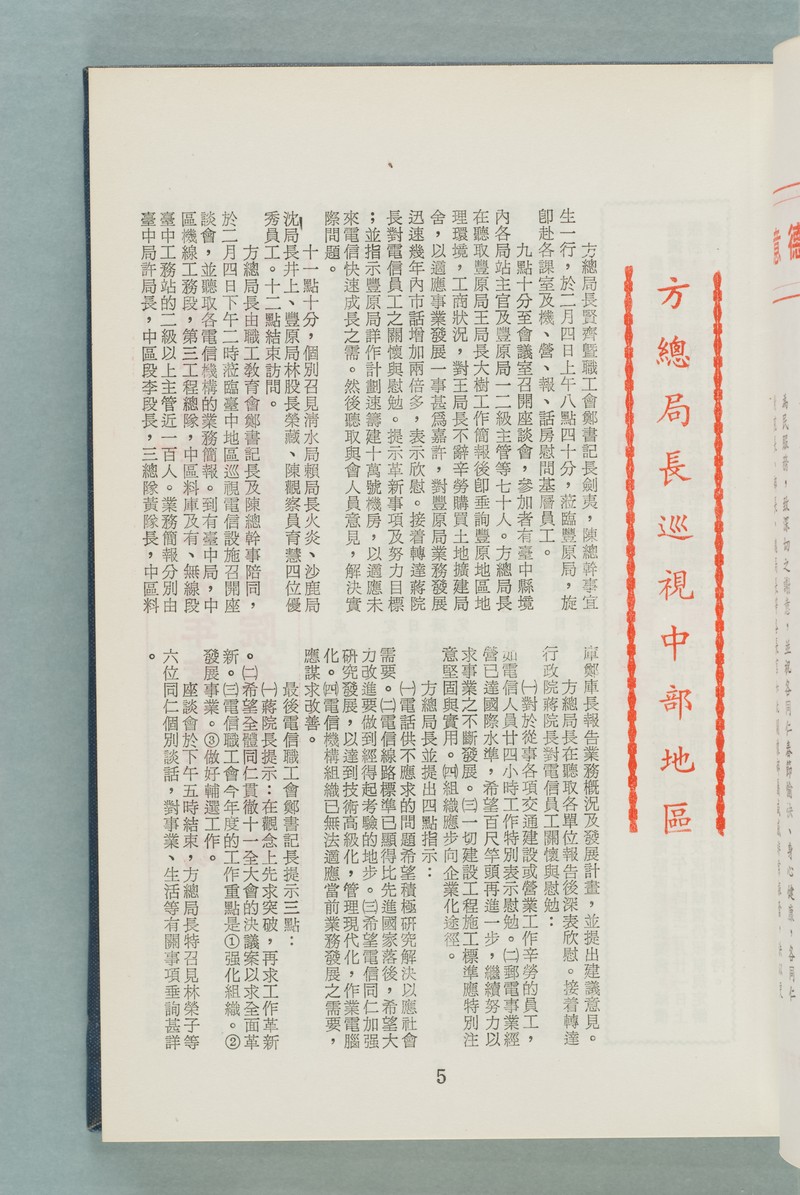 方總局長巡視中部地區
方總局長賢齊暨職工會鄭書記長劍夷，陳總幹事宜
生一行，於二月四日上午八點四十分，蒞臨豐原局，旋
卽赴各課室及機、營、報、話房慰問基層員工。
九點十分至會議室召開座談會，參加者有臺中縣境
內各局站主官及豐原局一二級主管等七十人。方總局長
在聽取豐原局王局長大樹工作簡報後卽垂詢豐原地區地
理環境，工商狀況，對王局長不辭辛勞購買土地擴建局
舍，以適應事業發展一事甚爲嘉許，對豐原局業務發展
迅速幾年內市話增加兩倍多，表示欣慰。接着轉達蔣院
長對電信員工之關懷與慰勉。提示革新事項及努力目標
；並指示豐原局詳作計劃速籌建十萬號機房，以適應未
來電信快速成長之需。然後聽取與會人員意見，解決實
際問題。
十一點十分，個別召見淸水局賴局長火炎、沙鹿局
沈局長井上、豐原局林股長榮藏、陳觀察員育慧四位優
秀員工。十二點結束訪問。
方總局長由職工敎育會鄭書記長及陳總幹事陪同，
於二月四日下午二時蒞臨臺中地區巡視電信設施召開座
談會，並聽取各電信機構的業務簡報。到有臺中局，中
區機線工務段，第三工程總隊，中區料庫及有、無線段
臺中工務站的二級以上主管近一百人。業務簡報分別由
臺中局許局長，中區段李段長，三總隊黃隊長，中區料
庫鄭庫長報告業務概況及發展計畫，並提出建議意見。
方總局長在聽取各單位報告後深表欣慰。接着轉達
行政院蔣院長對電信員工關懷與慰勉：
㈠對於從事各項交通建設或營業工作辛勞的員工，
如電信人員廿四小時工作特別表示慰勉。㈡郵電事業經
營已達國際水準，希望百尺竿頭再進一步，繼續努力以
求事業之不斷發展。㈢一切建設工程施工標準應特別注
意堅固與實用。㈣組織應步向企業化途徑。
方總局長並提出四點指示：
㈠電話供不應求的問題希望積極硏究解決以應社會
需要。㈡電信線路標準已顯得比先進國家落後，希望大
力改進要做到經得起考驗的地步。㈢希望電信同仁加强
硏究發展，以達到技術高級化，管理現代化，作業電腦
化。㈣電信機構組織已無法適應當前業務發展之需要，
應謀求改善。
最後電信職工會鄭書記長提示三點：
㈠蔣院長提示：在觀念上先求突破，再求工作革新
。㈡希望全體同仁貫徹十一全大會的決議案以求全面革
新。㈢電信職工會今年度的工作重點是①强化組織。②
發展事業。③做好輔選工作。
座談會於下午五時結束，方總局長特召見林榮子等
六位同仁個別談話，對事業、生活等有關事項垂詢甚詳
。
5